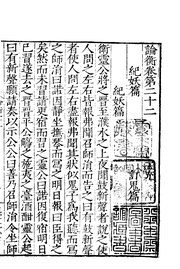 論衡卷第二十二
紀妖篇
訂鬼篇
紀妖篇
衛靈公將之晉至濮水之上夜聞鼓新聲者說之使
人問之左右皆報弗聞召師涓而告之曰有鼓新聲
者使人問之左右盡報弗聞其狀似鬼子為我聽而寫
之師涓曰諾因靜坐撫琴而寫之明日報曰臣得之
矣然而未習請更宿而習之靈公曰諾因復宿明日
已習遂去之晉晉平公觴之施夷之臺酒酣靈公起
曰有新聲願請奏以示公公曰善乃召師涓令坐師